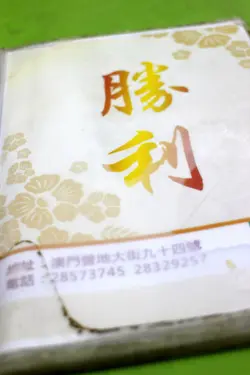 勝利
地址：澳門營地大街九十四號
電話：28573745 28329257